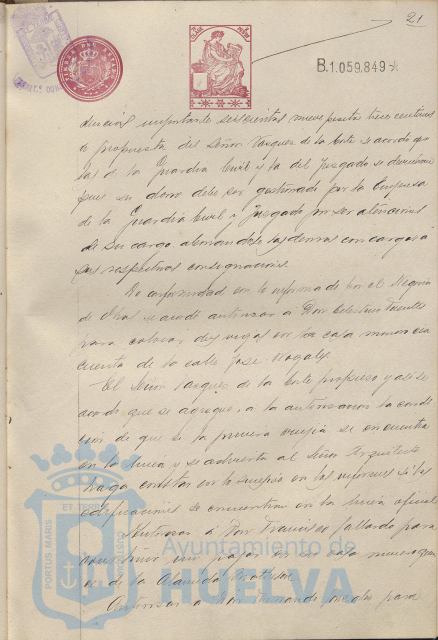 21
B.1.059.849
importante seiscientas nueve pesetas trece centimos
a propuesta del Señor Vazquez de la Corte se acordó que
las de la Guardia Civil y la del Juzgado se
pues su abono debe ser gestionado por la Empresa
de la Guardia Civil y Juzgado por ser atenciones
de su cargo abonandose las demas con cargo a
sus respectivas consignaciones.
En conformidad con lo informado por el Negdo
de Obras se acordó autorizar a Don Celestino
para colocar dos vigas en la casa numero
cuenta de la calle Jose Nogales.
El Señor Vazquez de la Corte propuso y así se
acordó que se agregue a la autorizacion la condi
cion de que si la primera crujia se encuentra
en la linea y se advierta al Señor Arquitecto
haga constar en lo sucesivo en los informes si las
edificaciones se encuentran en la linea oficial
Autorizar á Don Francisco Gallardo para
construir un en la casa numero
de la Alameda
Autorizar a Don Fernando para
PORTUS MARIS
Ayuntamiento de
HUELVA